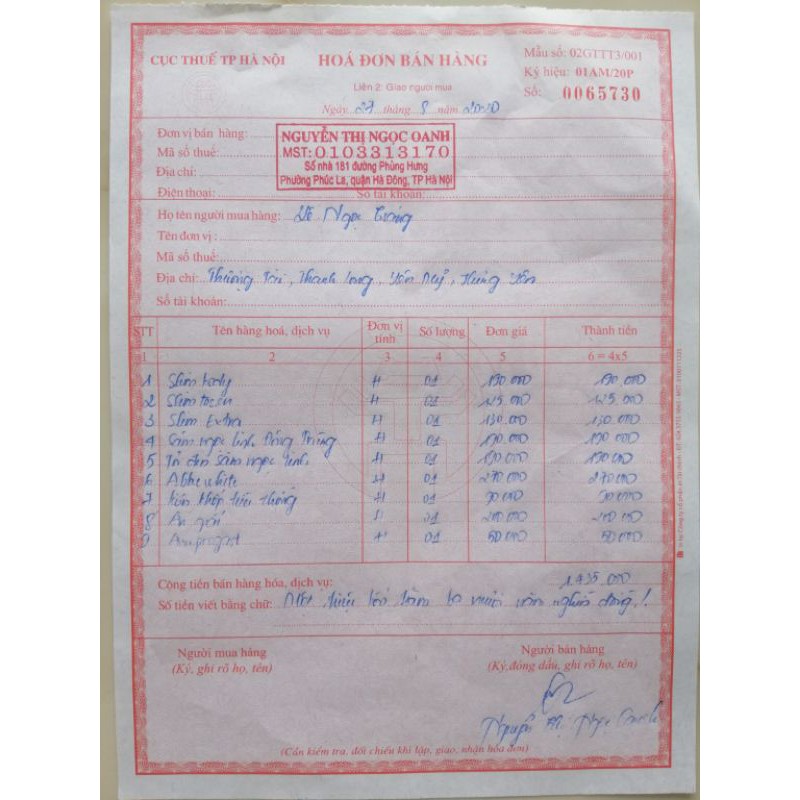 CỤC THUẾ TP HÀ NỘI
HOÁ ĐƠN BÁN HÀNG
Mẫu số: 02GTTT3/001
Ký hiệu: 01AM/20P
Liên 2: Giao người mua
Số: 0065730
Ngày 27 tháng 8 năm 2020
Đơn vị bán hàng:
NGUYỄN THỊ NGỌC OANH
Mã số thuế:
MST: 0103313170
Địa chỉ:
Số nhà 181 đường Phùng Hưng
Phường Phúc La, quận Hà Đông, TP Hà Nội
Điện thoại: Số tài khoản:
Họ tên người mua hàng: Ngọc
Tên đơn vị:
Mã số thuế:
Địa chỉ: Thanh Long, Yên Mỹ, Hưng Yên
Số tài khoản:
STT Tên hàng hoá, dịch vụ Đơn vị tính Số lượng Đơn giá Thành tiền
1 2 3 4 5 6 = 4x5
1 Slim body H 01 190.000 190.000
2 Slim H 01 125.000 125.000
3 Slim Extra H 01 130.000 130.000
4 Sâm ngọc linh Đông Trùng H 01 190.000 190.000
5 sâm ngọc linh H 01 190.000 190.000
6 white H 01 270.000 270.000
7 H 01 90.000 90.000
8 An H 01 200.000 200.000
9 H 01 50.000 50.000
Cộng tiền bán hàng hóa, dịch vụ: 1.435.000
Số tiền viết bằng chữ: Một triệu bốn trăm ba mươi năm nghìn đồng!
Người mua hàng
Người bán hàng
(Ký, ghi rõ họ, tên)
(Ký, đóng dấu, ghi rõ họ, tên)
Nguyễn Thị Ngọc Oanh
(Cần kiểm tra, đối chiếu khi lập, giao, nhận hóa đơn)